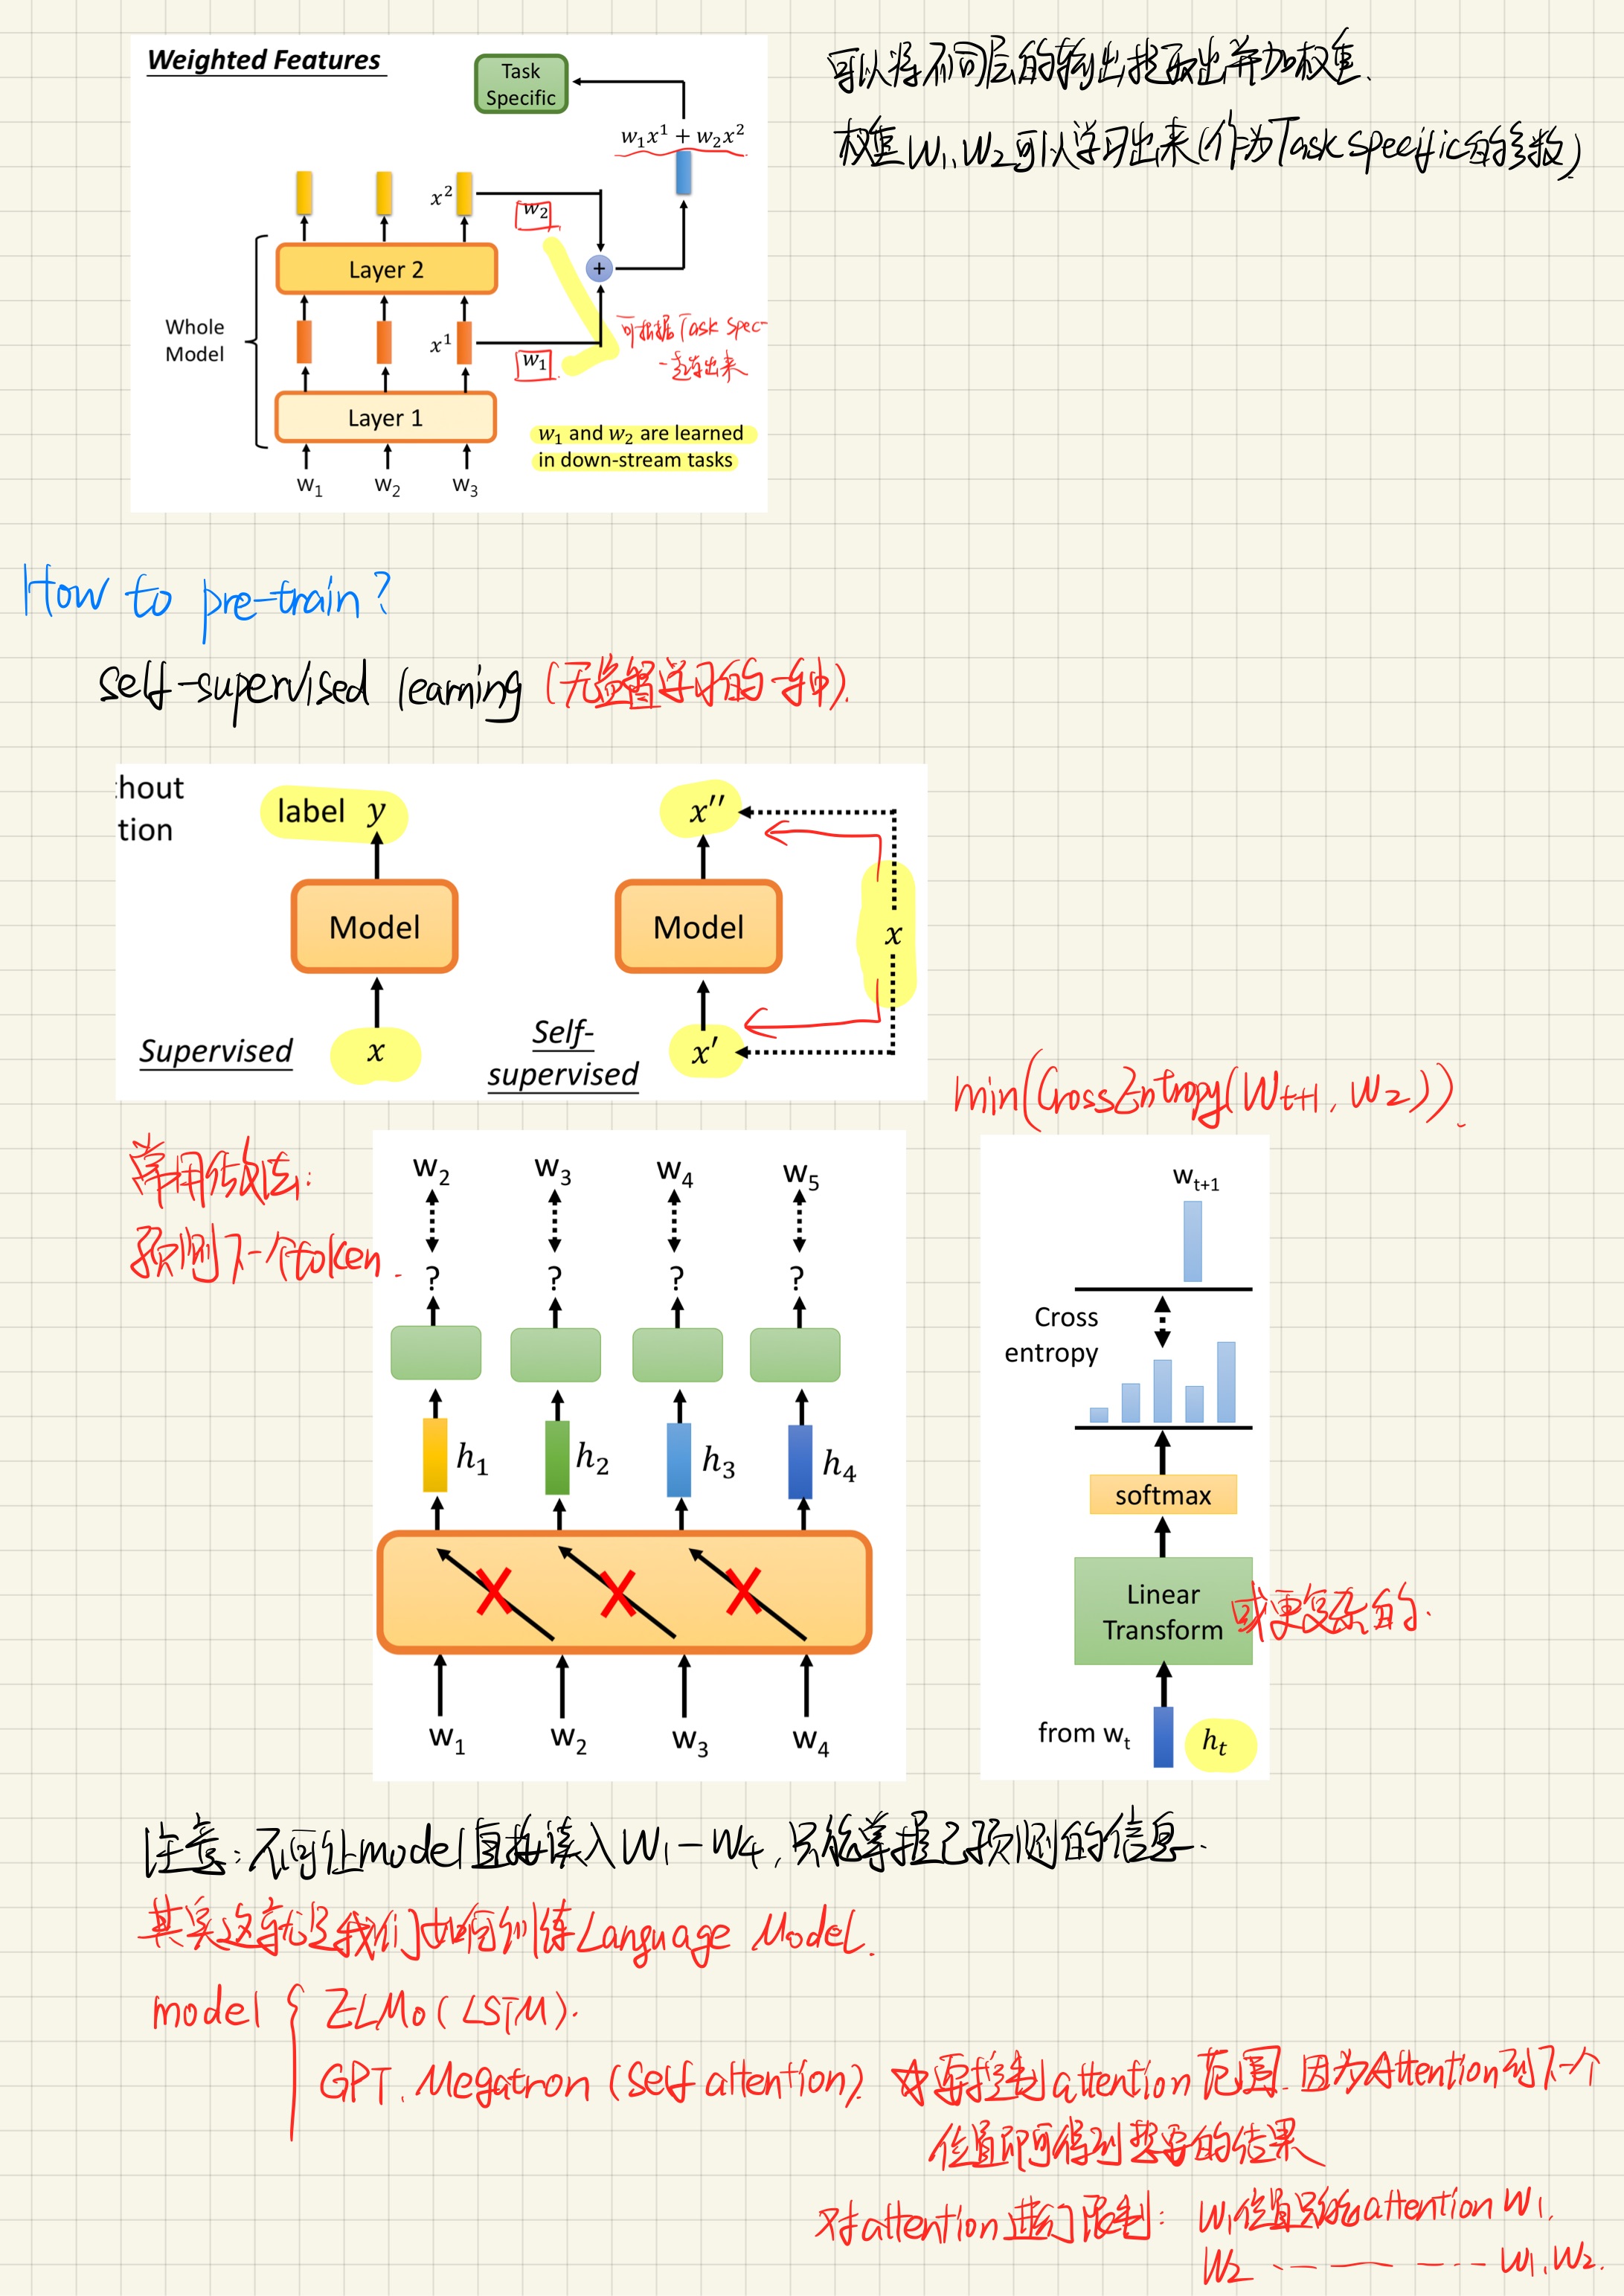 Weighted Features
Task
Specific
w₁x¹ + w₂x²
x²
w₂
Layer 2
+
Whole
Model
x¹
w₁
可根据Task Spec-
一起学出来
Layer 1
w₁ and w₂ are learned
in down-stream tasks
w₁ w₂ w₃
可以将不同层的输出提取出并加权重.
权重W₁、W₂可以学习出来(作为Task specific的参数)
How to pre-train?
self-supervised learning (无监督学习的一种).
hout
tion
label y
Model
x
Supervised
x′′
Model
x′
x
Self-
supervised
min(CrossEntropy(Wt+1, W₂)).
常用做法:
预测下一个token.
w₂ w₃ w₄ w₅
? ? ? ?
h₁ h₂ h₃ h₄
w₁ w₂ w₃ w₄
wt+1
Cross
entropy
softmax
Linear
Transform
或更复杂的.
from wt
ht
注意:不可让model直接读入W₁-W₄,只能掌握已预测的信息.
其实这就是我们如何训练Language Model.
model { ELMo (LSTM).
GPT、Megatron (Self attention) ☆要控制attention范围.因为Attention到下一个
位置即可得到想要的结果
对attention进行限制: W₁位置只能attention W₁,
W₂ ---- ---- W₁、W₂.